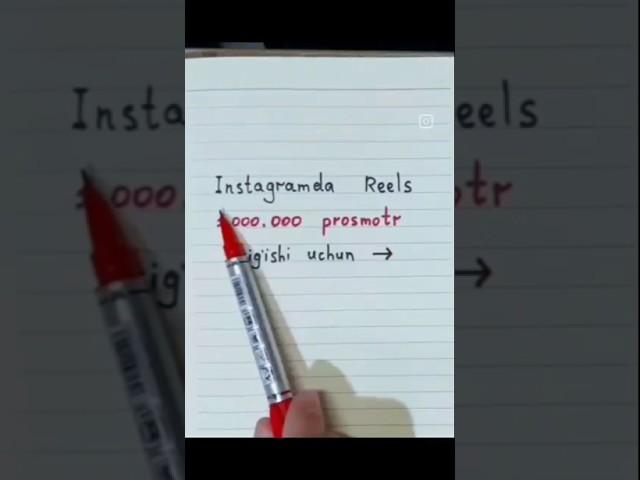 Instagramda Reels
000.000 prosmotr
uchun →